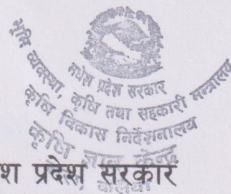 मधेश प्रदेश सरकार
भूमि व्यवस्था, कृषि तथा सहकारी मन्त्रालय
कृषि विकास निर्देशनालय
कृषि ज्ञान केन्द्र
श प्रदेश सरकार